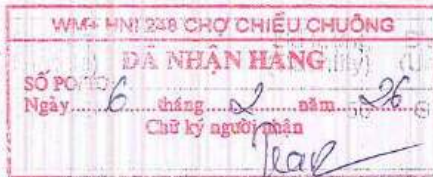 WM+ HNI 248 CHỢ CHIỀU CHUÔNG
ĐÃ NHẬN HÀNG
SỐ PO/TO
Ngày 6 tháng 2 năm 26
Chữ ký người nhận